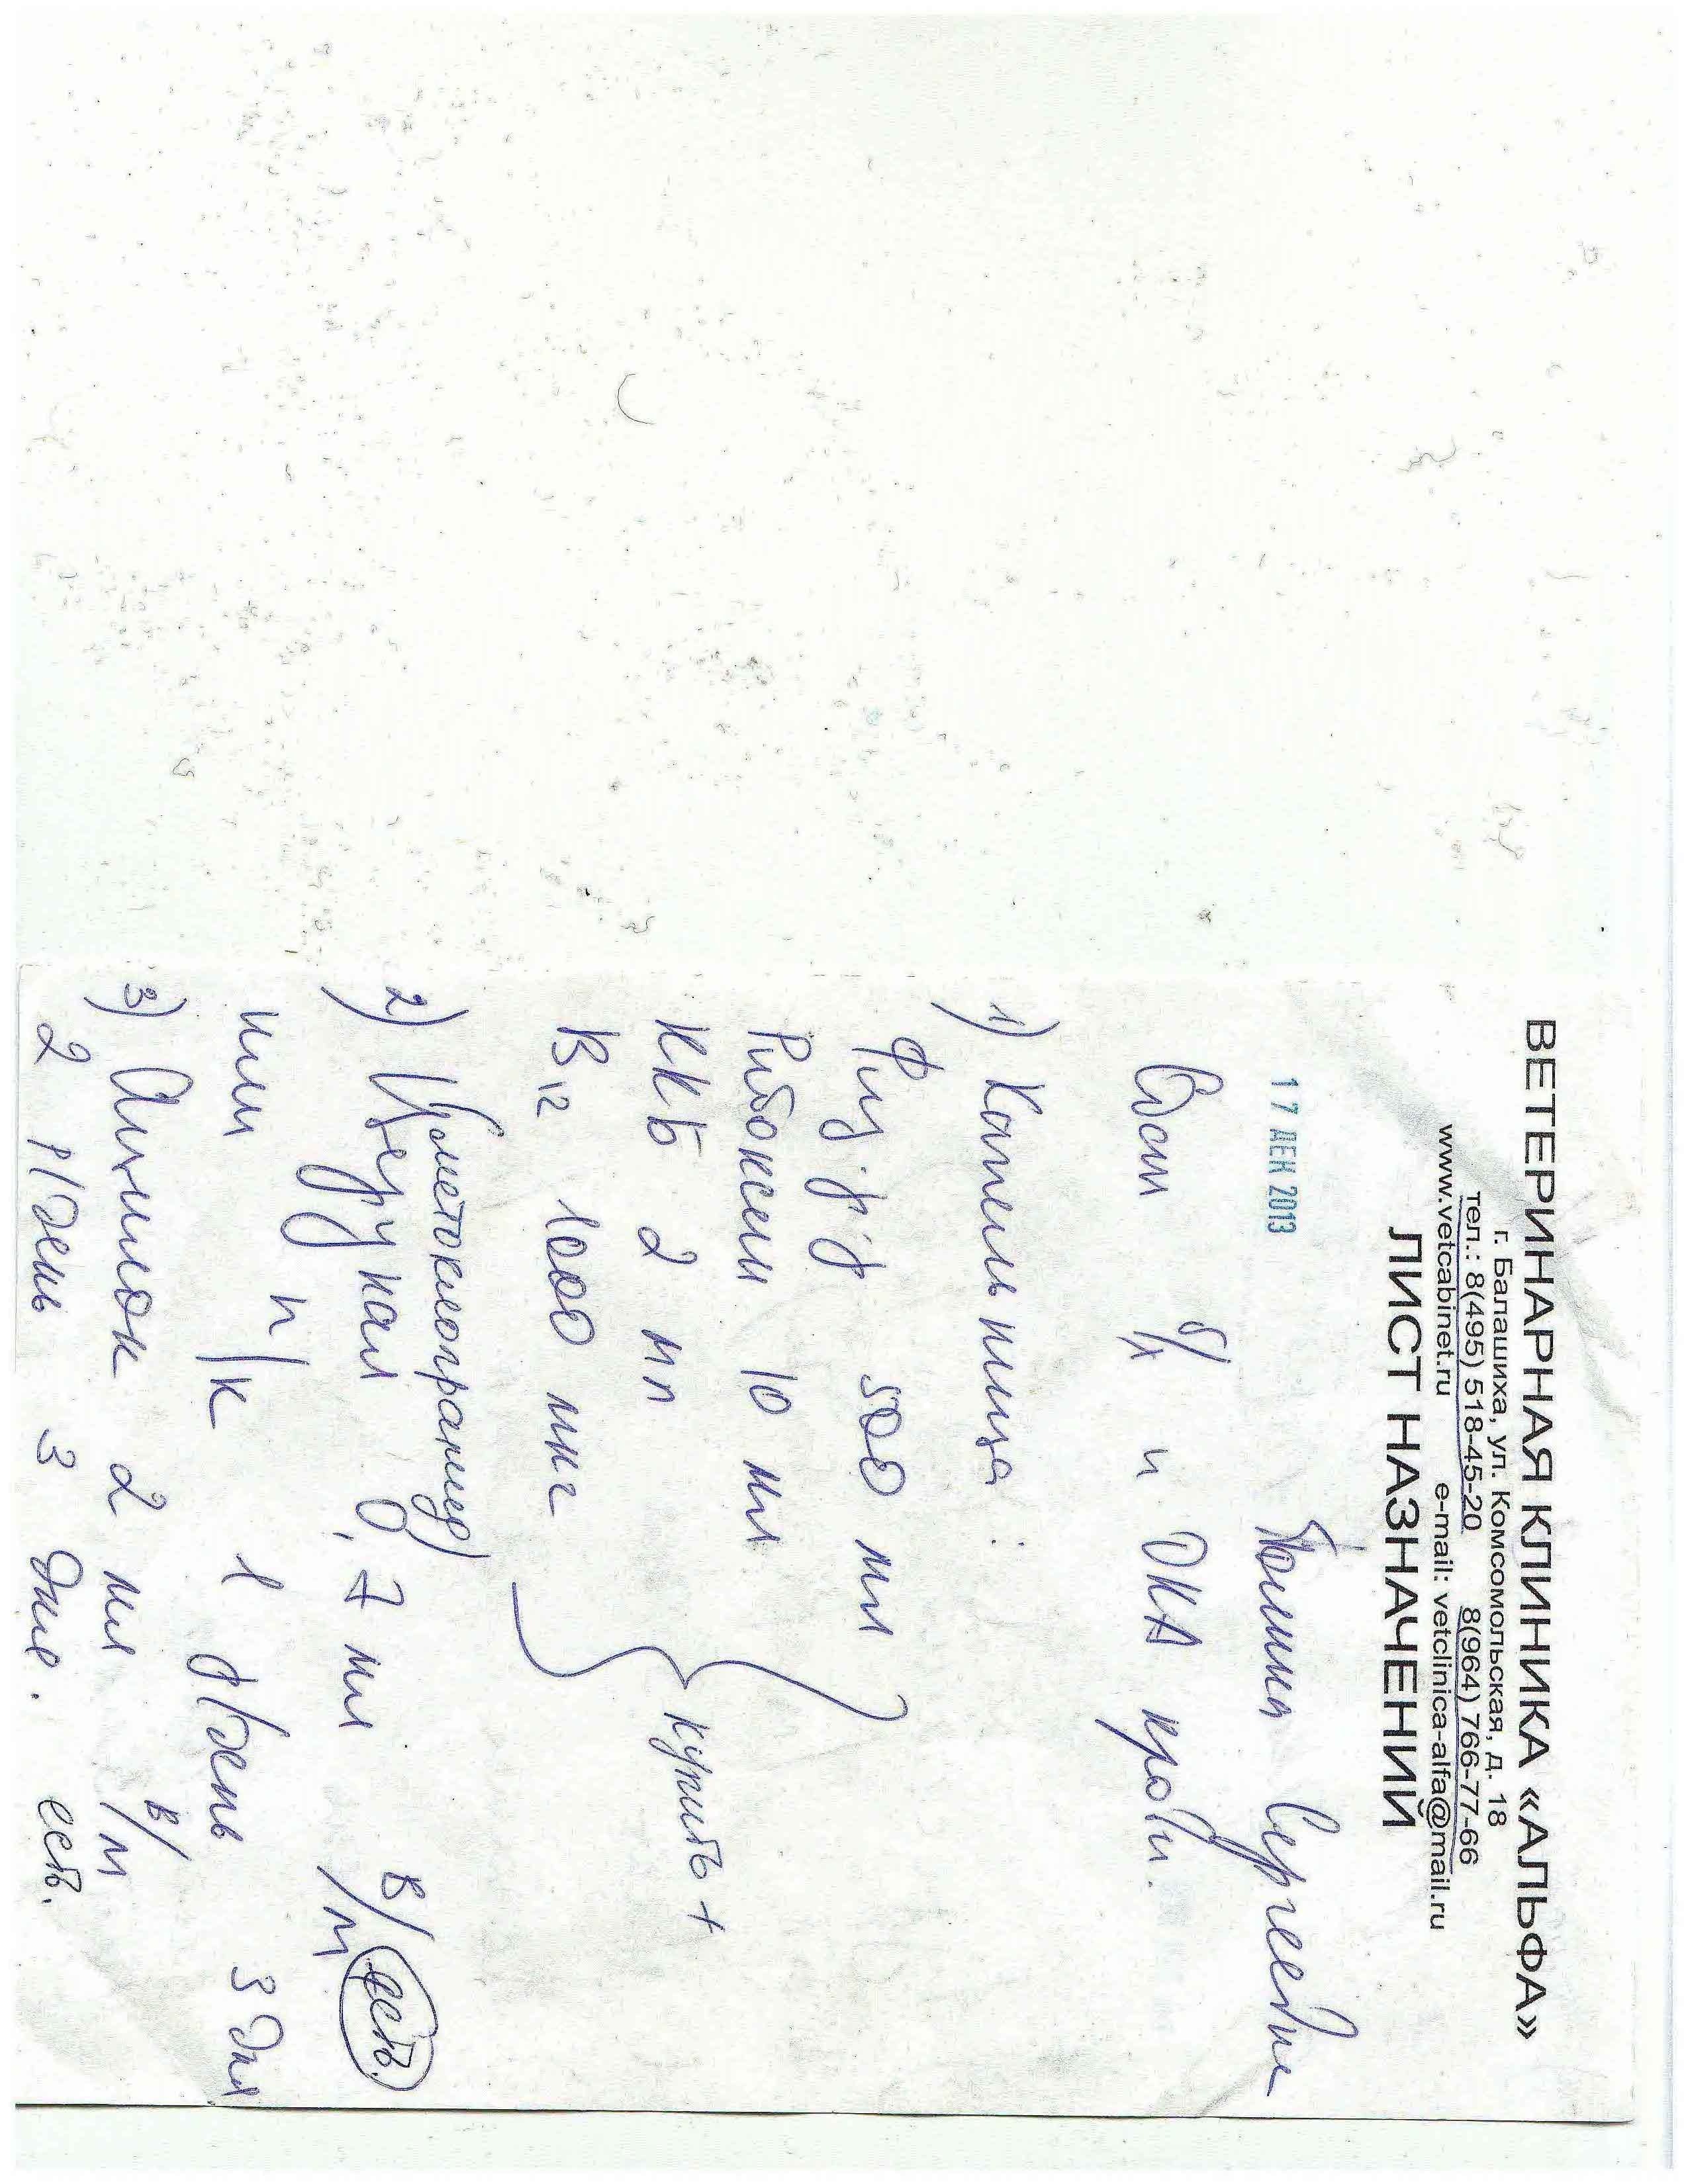 ВЕТЕРИНАРНАЯ КЛИНИКА «АЛЬФА»
г. Балашиха, ул. Комсомольская, д. 18
тел.: 8(495) 518-45-20 8(964) 766-77-66
www.vetcabinet.ru e-mail: vetclinica-alfa@mail.ru
ЛИСТ НАЗНАЧЕНИЙ
17 ДЕК 2013
б/х и ОКА крови.
1) Капельница:
Физ. р-р 500 мл
Рибоксин 10 мл
ККБ 2 мл
В12 1000 мкг
Купить +
(метоклопрамид)
2) Церукал 0,7 мл в/м есть.
или п/к 1 р/день 3 дня
3) 2 мл в/м
2 р/день 3 дня. есть.